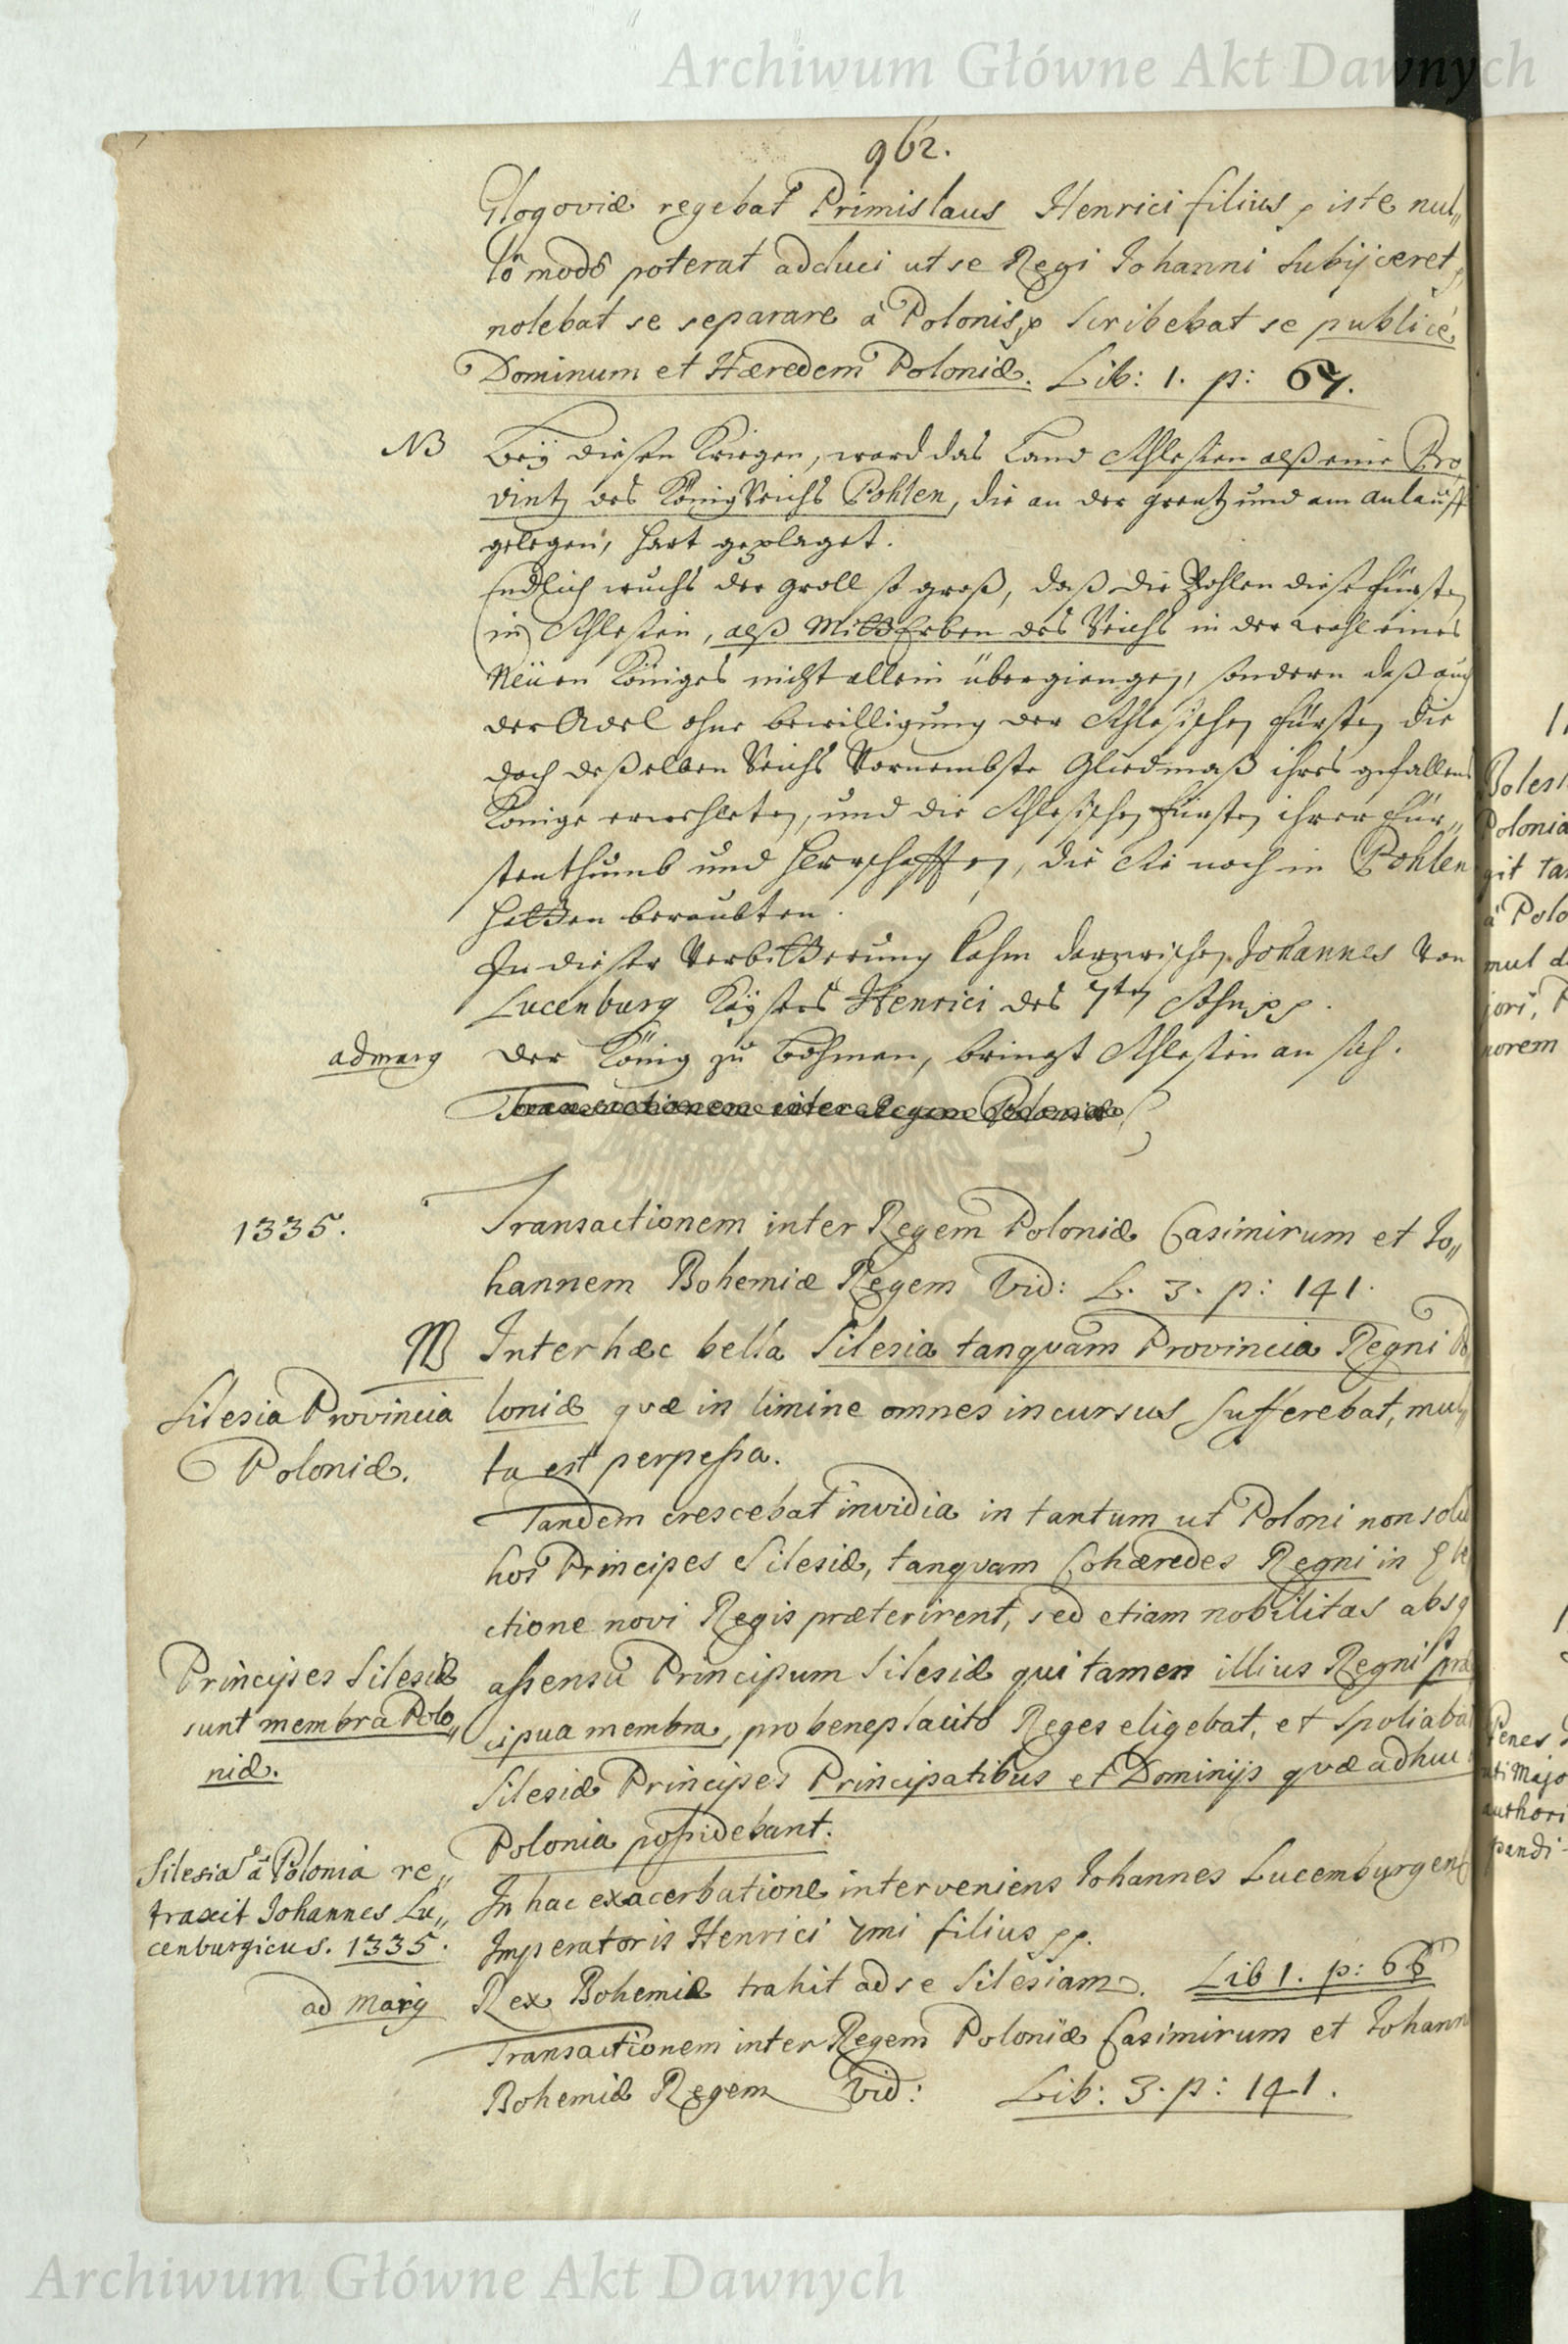 Archiwum Główne Akt Dawnych
962.
Glogoviæ regebat Primislaus Henrici filius, iste nul„
lô modô poterat adduci ut se Regi Johanni subijceret,
nolebat se separare à Polonis, scribebat se publicè
Dominum et Hæredem Poloniæ. Lib: 1. p: 67.
NB Beÿ diesen Kriegen, ward das Land Schlesien alß eine Pro
vintz des KönigReichs Pohlen, die an der grentz und am anlauff
gelegen, hart geplaget.
Endlich wuchs der groll so groß, daß die Pohlen diese fürsten
in Schlesien, alß Mitt Erben des Reichs in der wahl eines
Neüen Königes nicht allein übergiengen, sondern daß auch
der Adel ohne bewilligung der Schlesischen fürsten die
doch deßelben Reichs Vornembste Gliedmaß ihres gefallens
Könige erwehleten, und die Schlesischen fürsten ihrer für„
stenthumb und Herrschafften, die Sie noch in Pohlen
hatten beraubten.
In dieser Verbitterung kahm darzwischen Johannes von
Lucenburg Kaÿsers Henrici des 7ten Sohn pp.
ad marg Der König zu Böhmen, bringt Schlesien an sich.
Transactionem inter Regem Poloniæ
1335. Transactionem inter Regem Poloniæ Casimirum et Jo„
hannem Bohemiæ Regem Vid: L. 3. p: 141.
NB Inter hæc bella Silesia tanqvam Provincia Regni Po
Silesia Provincia
Poloniæ.
loniæ qvæ in limine omnes incursus sufferebat, mul„
ta est perpeßa.
Tandem crescebat invidia in tantum ut Poloni non solu
hos Principes Silesiæ, tanqvam Cohæredes Regni in Ele
ctione novi Regis præterirent, sed etiam nobilitas absq
Principes Silesiæ
sunt membra Polo„
niæ.
aßensu Principum Silesiæ qui tamen illius Regni præ
cipua membra, pro beneplacito Reges eligebat, et spoliaba
Silesiæ Principes Principatibus et Dominijs qvæ adhuc
Polonia poßidebant.
Silesia à Polonia re„
traxit Johannes Lu„
cenburgicus. 1335.
In hac exacerbatione interveniens Johannes Lucemburgens
Imperatoris Henrici 7mi filius pp.
ad marg Rex Bohemiæ trahit ad se Silesiam. Lib 1. p: 66
Transactionem inter Regem Poloniæ Casimirum et Johann
Bohemiæ Regem Vid: Lib: 3. p: 141.
Polonia
à Polo
mul
norem
Penes
Majo
authori
pandi
Archiwum Główne Akt Dawnych